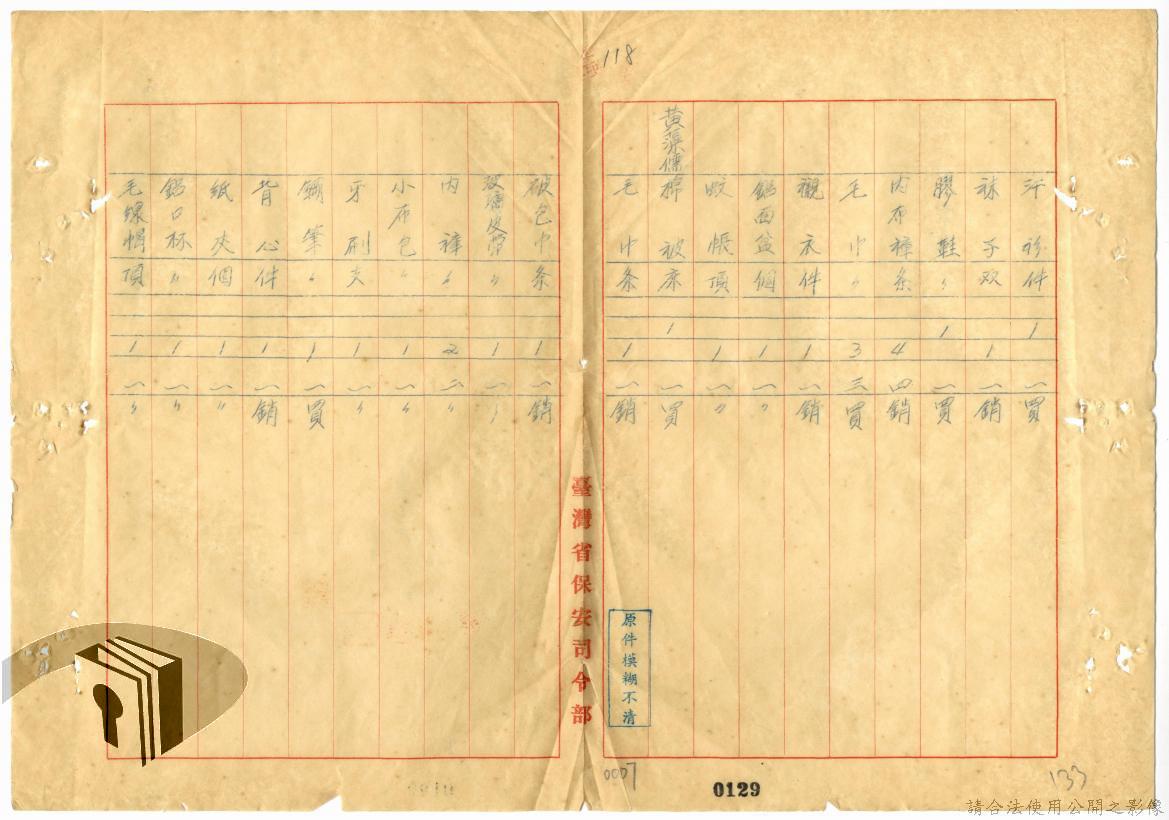 118
汗衫件 1 一買
袜子双 1 一銷
膠鞋〃 1 一買
内布褲条 4 四銷
毛巾〃 3 三買
襯衣件 1 一銷
鋁面盆個 1 一〃
蚊帳頂 1 一〃
黃 棉被床 1 一買
毛巾条 1 一銷
破包巾条 1 一銷
玻璃皮帶〃 1 一〃
内褲〃 2 二〃
小布包〃 1 一〃
牙刷支 1 一〃
鋼筆〃 1 一買
背心件 1 一銷
紙夾個 1 一〃
鋁口杯〃 1 一〃
毛線帽頂 1 一〃
臺灣省保安司令部
原件模糊不清
0007
0129
133
請合法使用公開之影像